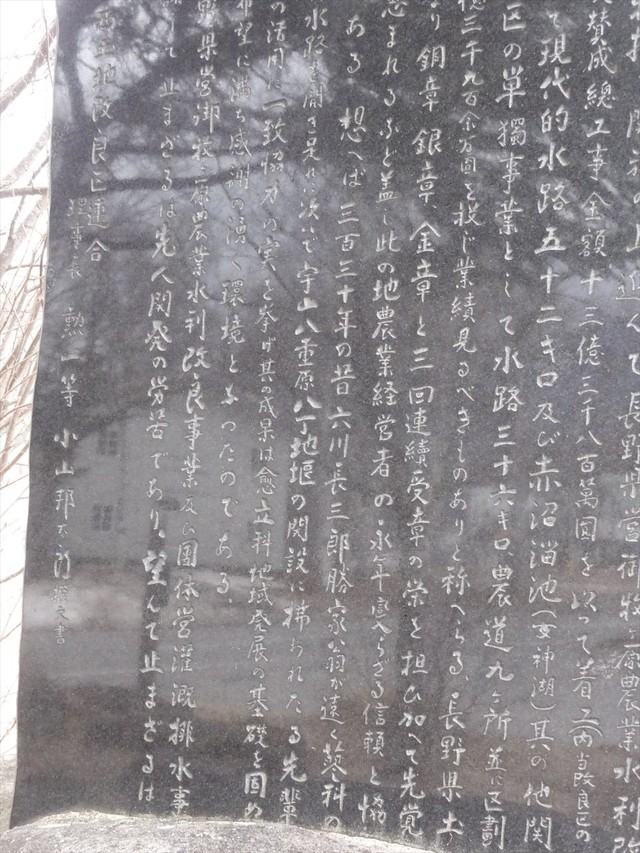 進んで長野県営御牧ヶ原農業水利改
賛成總工事金額十三億三千八百萬圓を以って着工当改良区の
て現代的水路五十二キロ及び赤沼溜池(女神湖)其の他関
区の単獨事業として水路三十六キロ農道九ヶ所並に区劃
億三千九百余万圓を投じ業績見るべきものありと称へらる、長野県土
なり銅章、銀章、金章と三回連續受章の栄を担ひ加へて先覚
まれるなど蓋し此の地農業経営者の永年変らざる信頼と協
ある想へば三百三十年の昔六川長三郎勝家翁が遠く蓼科の
水路を開き次いで宇山八重原八丁地堰の開設に拂われたる先輩
の活用に一致協力の実を挙げ其の成果は愈立科地域発展の基礎を固め
希望に満ち感謝の湧く環境となったのである、
県営御牧ヶ原農業水利改良事業及び團体営灌漑排水事
て止まざるは先人開発の労苦であり、望んで止まざるは
土地改良区連合
理事長 勲一等 小山邦太郎 撰文書